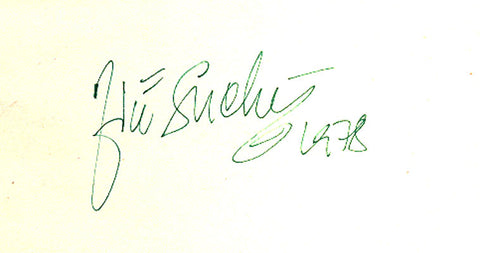 Jiří Suchý 1978